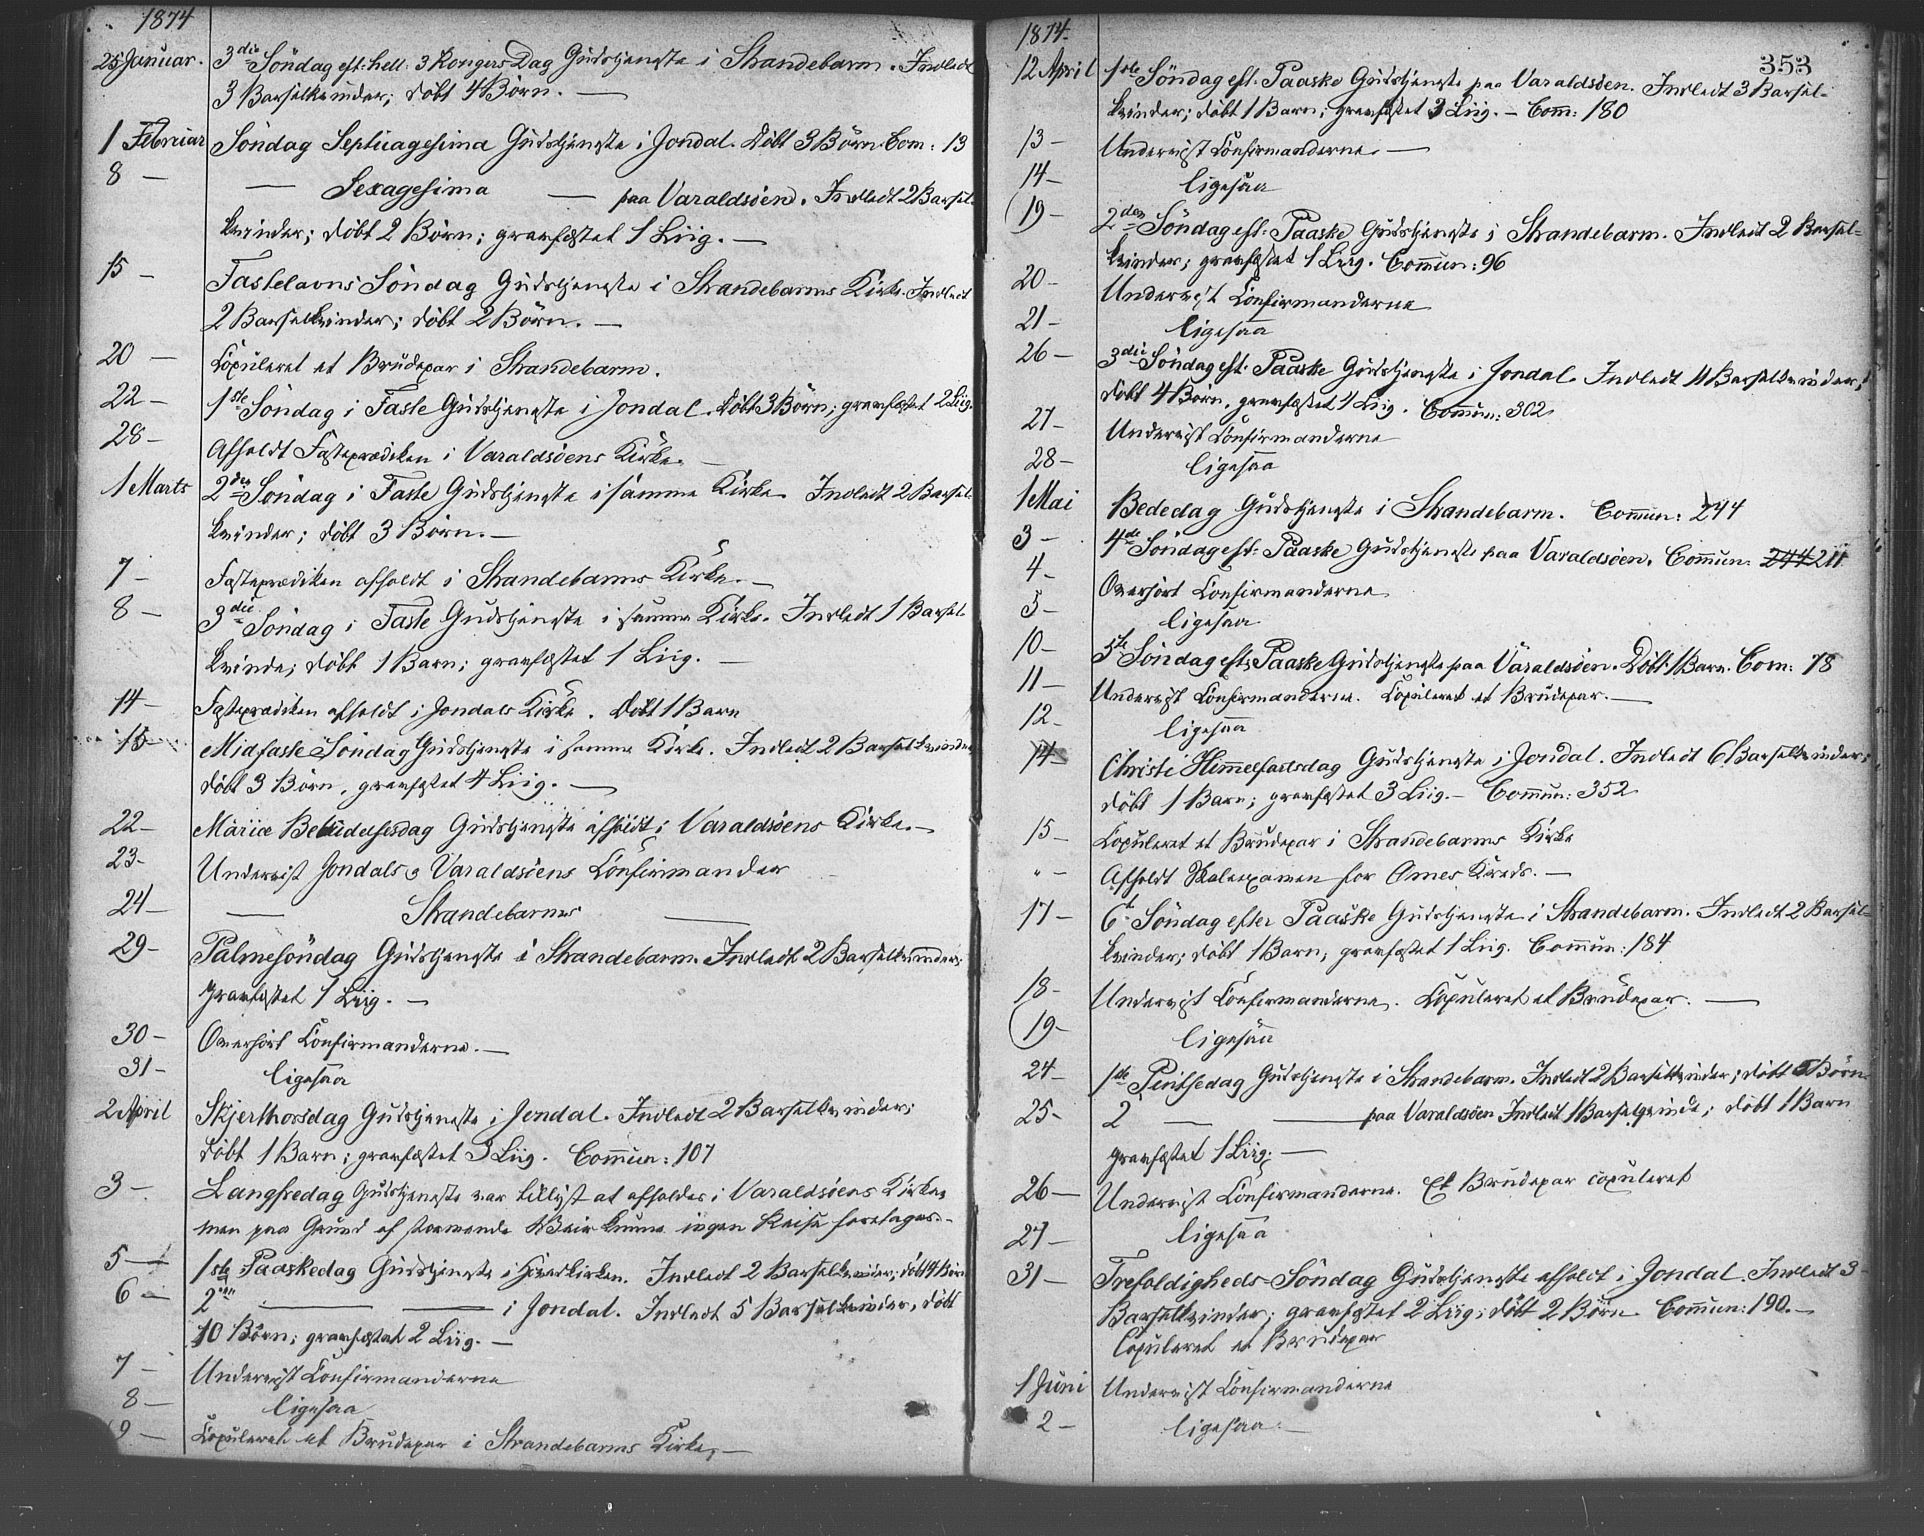 1874
25 Januar. 3die Söndag eft. hell. 3 Kongers Dag Gudstjeneste i Strandebarm. Indledt
3 Barselkvinder; döbt 4 Börn. —
1 Februar Söndag Septuagesima Gudstjeneste i Jondal. Döbt 3 Börn. Com: 13
8 — — Sexagesima — paa Varaldsöen. Indledt 2 Barsel-
kvinder; döbt 2 Börn; gravfæstet 1 Liig. —
15 — Fastelavns Söndag Gudstjeneste i Strandebarms Kirke. Indledt
2 Barselkvinder; döbt 2 Börn. —
20 — Copuleret et Brudepar i Strandebarm.
22 — 1ste Söndag i Faste Gudstjeneste i Jondal. Döbt 3 Börn; gravfæstet 2 Liig.
28 — Afholdt Fasteprædiken i Varaldsöens Kirke. —
1 Marts 2den Söndag i Faste Gudstjeneste i samme Kirke. Indledt 2 Barsel-
kvinder; döbt 3 Börn. —
7 — Fasteprædiken afholdt i Strandebarms Kirke. —
8 — 3die Söndag i Faste Gudstjeneste i samme Kirke. Indledt 1 Barsel-
kvinde; döbt 1 Barn; gravfæstet 1 Liig. —
14 — Fasteprædiken afholdt i Jondals Kirke. Döbt 1 Barn
15 — Midfaste Söndag Gudstjeneste i samme Kirke. Indledt 2 Barselkvinder
döbt 3 Börn, gravfæstet 4 Liig. —
22 — Mariæ Bebudelsesdag Gudstjeneste afholdt i Varaldsöens Kirke. —
23 — Underviist Jondals o Varaldsöens Confirmander
24 — — Strandebarms —
29 — Palmesöndag Gudstjeneste i Strandebarm. Indledt 2 Barselkvinder;
gravfæstet 1 Liig. —
30 — Overhört Confirmanderne. —
31 — ligesaa
2 April Skjærthorsdag Gudstjeneste i Jondal. Indledt 2 Barselkvinder;
döbt 1 Barn; gravfæstet 3 Liig. Commun: 107
3 — Langfredag Gudstjeneste var tillyst at afholdes i Varaldsöens Kirke,
men paa Grund af stormende Veir kunne ingen Reise foretages. —
5 — 1ste Paaskedag Gudstjeneste i Hovedkirken. Indledt 2 Barselkvinder; döbt 4 Börn
6 — 2den — — i Jondal. Indledt 5 Barselkvinder, döbt
10 Börn; gravfæstet 2 Liig. —
7 — Underviist Confirmanderne
8 — ligesaa
9 — Copuleret et Brudepar i Strandebarms Kirke. —
1874.
353
12 April 1ste Söndag eft. Paaske Gudstjeneste paa Varaldsöen. Indledt 3 Barsel-
kvinder; döbt 1 Barn; gravfæstet 3 Liig. — Comm: 180
13 — Underviist Confirmanderne. —
14 — ligesaa
19 — 2den Söndag eft. Paaske Gudstjeneste i Strandebarm. Indledt 2 Barsel-
kvinder; gravfæstet 1 Liig. Commun: 96
20 — Underviist Confirmanderne
21 — ligesaa
26 — 3die Söndag eft. Paaske Gudstjeneste i Jondal. Indledt 11 Barselkvinder;
döbt 4 Börn, gravfæstet 1 Liig. Commun: 302
27 — Underviist Confirmanderne
28 — ligesaa
1 Mai Bededag Gudstjeneste i Strandebarm. Commun: 244
3 — 4de Söndag eft. Paaske Gudstjeneste paa Varaldsöen. Commun: 244 211
4 — Overhört Confirmanderne
5 — ligesaa
10 — 5te Söndag eft. Paaske Gudstjeneste paa Varaldsöen. Döbt 1 Barn. Com: 78
11 — Underviist Confirmanderne. Copuleret et Brudepar. —
12 — ligesaa
14 — Christi Himmelfartsdag Gudstjeneste i Jondal. Indledt 6 Barselkvinder;
döbt 1 Barn; gravfæstet 3 Liig. — Commun: 352
15 — Copuleret et Brudepar i Strandebarms Kirke
" — Afholdt Skoleexamen for Omes Kreds. —
17 — 6te Söndag efter Paaske Gudstjeneste i Strandebarm. Indledt 2 Barsel-
kvinder; döbt 1 Barn, gravfæstet 1 Liig. Commun: 184
18 — Underviist Confirmanderne. Copuleret et Brudepar. —
19 — ligesaa
24 — 1ste Pintsedag Gudstjeneste i Strandebarm. Indledt 2 Barselkvinder; döbt 5 Börn
25 — 2 — — paa Varaldsöen Indledt 1 Barselqvinde; döbt 1 Barn
gravfæstet 1 Liig. —
26 — Underviist Confirmanderne. Et Brudepar copuleret
27 — ligesaa
31 — Trefoldigheds-Söndag Gudstjeneste afholdt i Jondal. Indledt 3
Barselkvinder; gravfæstet 2 Liig; döbt 2 Börn. Commun: 190. —
Copuleret et Brudepar
1 Juni Underviist Confirmanderne
2 — ligesaa. —